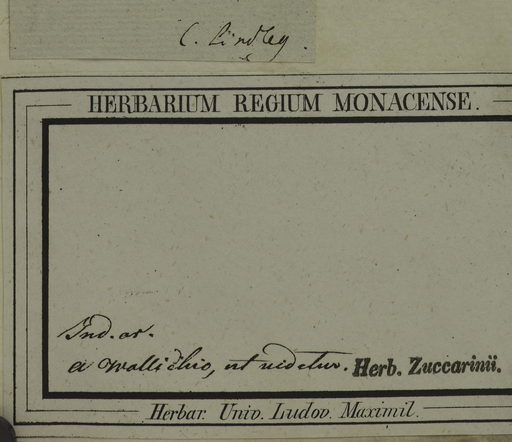 C. Lindley.
HERBARIUM REGIUM MONACENSE.
Ind. or.
a Wallichio, ut videtur. Herb. Zuccarinii.
Herbar. Univ. Ludov. Maximil.